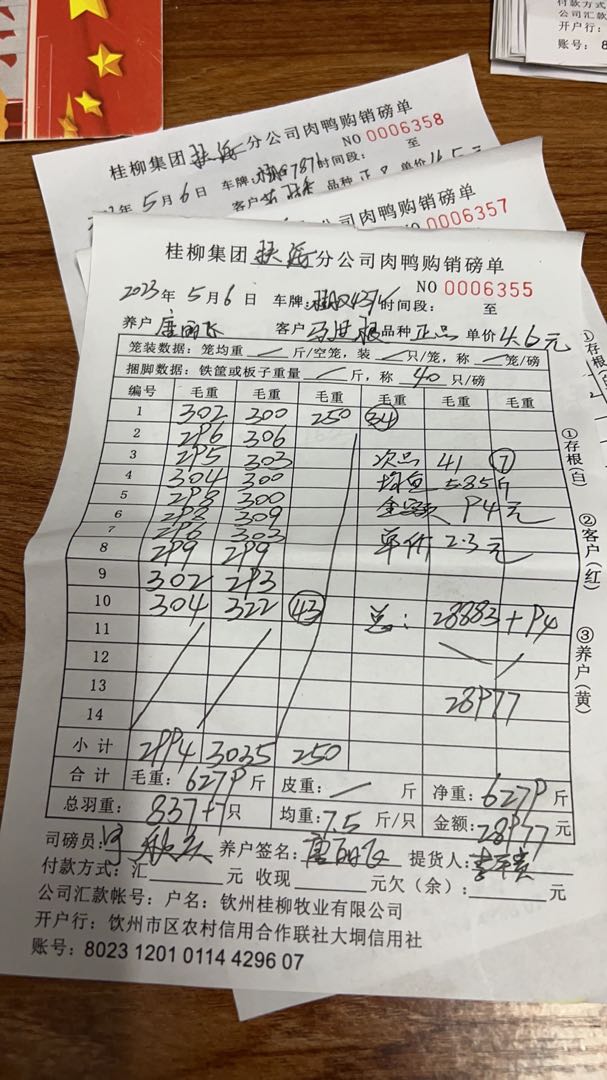 付款方式
公司汇款
开户行:
账号: 8
桂柳集团 分公司肉鸭购销磅单
NO 0006358
年 5月6日 车牌: 时间段:
客户 品种 正 单价
公司肉鸭购销磅单
NO 0006357
桂柳集团 分公司肉鸭购销磅单
NO 0006355
2023年 5月6日 车牌: 时间段: 至
养户 客户 品种 正品 单价 4.6元
笼装数据: 笼均重 / 斤/空笼, 装 / 只/笼, 称 / 笼/磅
捆脚数据: 铁筐或板子重量 / 斤, 称 40 只/磅
编号 毛重 毛重 毛重 毛重 毛重 毛重
1 302 300 250 34
2 296 306
3 295 303 次品 41 7
4 304 300 均重 5.85斤
5 298 300 金额 94元
6 309
7 303 单价 2.3元
8 299 299
9 302 293
10 304 322 43 总: 28883+94
11
12
13 28977
14
小计 2994 3035 250
合计 毛重: 6279斤 皮重: / 斤 净重: 6279斤
总羽重: 837+7只 均重: 7.5斤/只 金额: 28977元
司磅员: 养户签名: 提货人:
付款方式: 汇 元 收现 元欠(余): 元
公司汇款帐号: 户名: 钦州桂柳牧业有限公司
开户行: 钦州市区农村信用合作联社大垌信用社
账号: 8023 1201 0114 4296 07
①存根(白) ②客户(红) ③养户(黄)
①存根